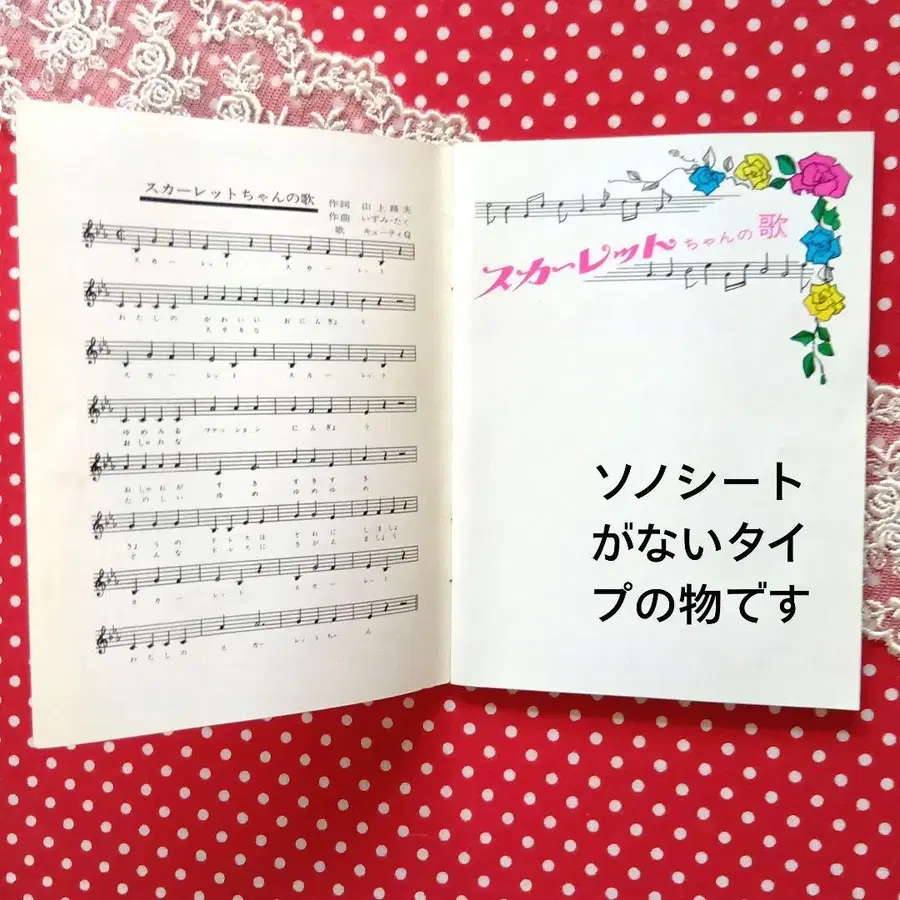 スカーレットちゃんの歌
作詞 山上路夫
作曲 いずみ・たく
歌 キューティQ
スカーレット スカーレット
わたしの かわいい おにんぎょう
すてきな
スカーレット スカーレット
ゆめみる ファッション にんぎょう
おしゃれな
おしゃれが すき すきすき
たのしい ゆめ ゆめゆめ
きょうの ドレスは どれに しましょ
どんな ドレスに きがえ ましょう
スカーレット スカーレット
わたしの スカーレットちゃん
スカーレットちゃんの歌
ソノシート
がないタイ
プの物です